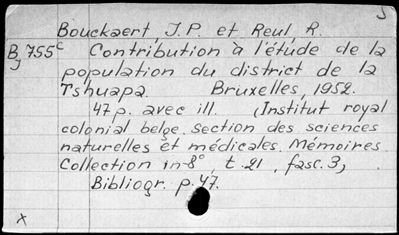 J
Bouckaert, J.P. et Reul, R.
B 755c Contribution à l'étude de la
J
population du district de la
Tshuapa. Bruxelles, 1952.
47p. avec ill. (Institut royal
colonial belge. Section des sciences
naturelles et médicales. Mémoires
Collection in-8°, t. 21, fasc. 3)
Bibliogr. p. 47.
x